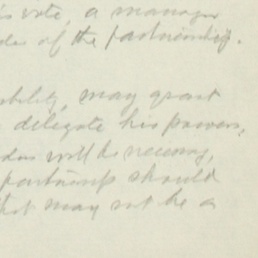 vote, a manager
of the partnership.
may grant
delegate his powers,
will be necessary,
partnership should
that may not be a